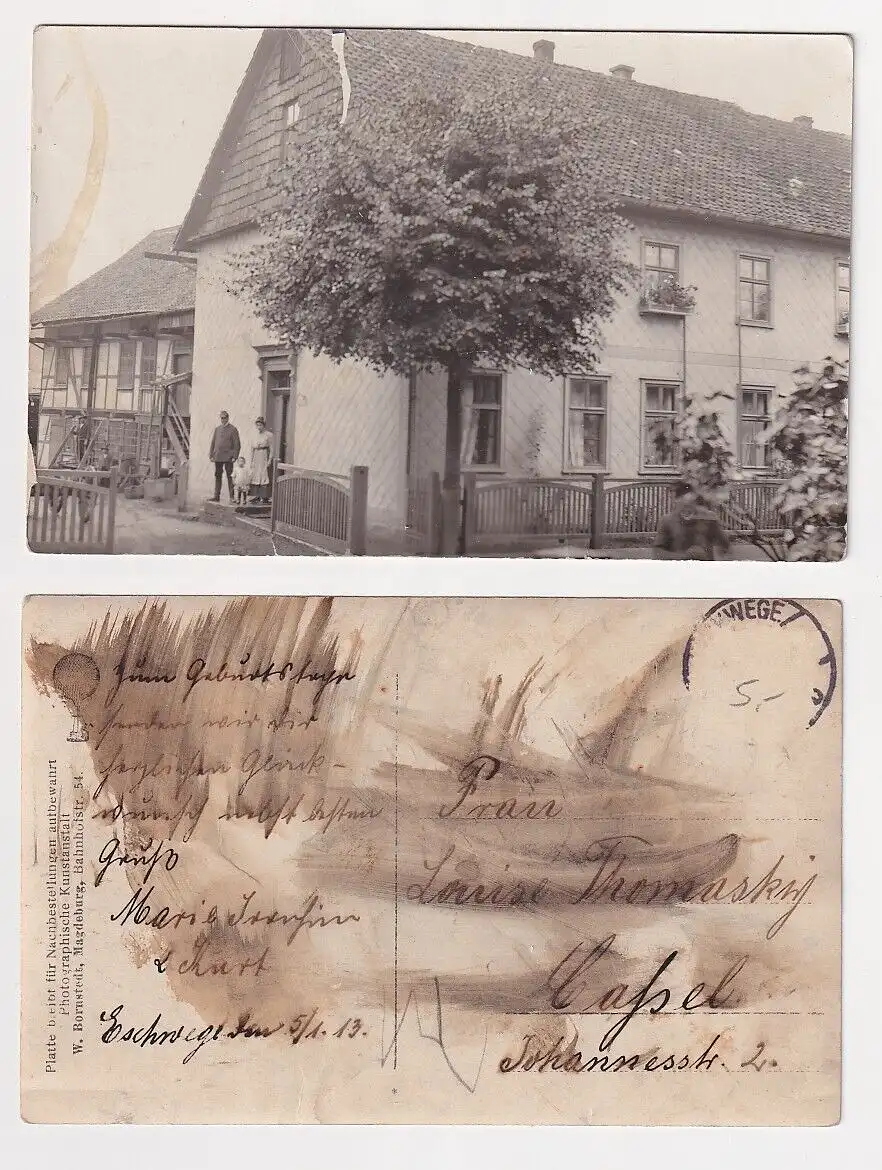 Zum Geburtstage
senden wir dir
herzlichen Glück-
wunsch nebst besten
Gruß
Marie
& Kurt
Eschwege den 5/1. 13.
Platte bleibt für Nachbestellungen aufbewahrt
Photographische Kunstanstalt
W. Bornstedt, Magdeburg, Bahnhofstr. 54.
WEGE
5,-
Frau
Louise Thomasky
Cassel
Johannesstr. 2.